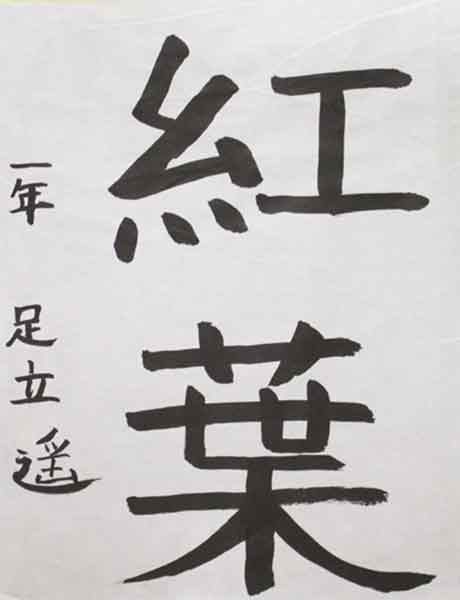 紅葉
一年 足立遥